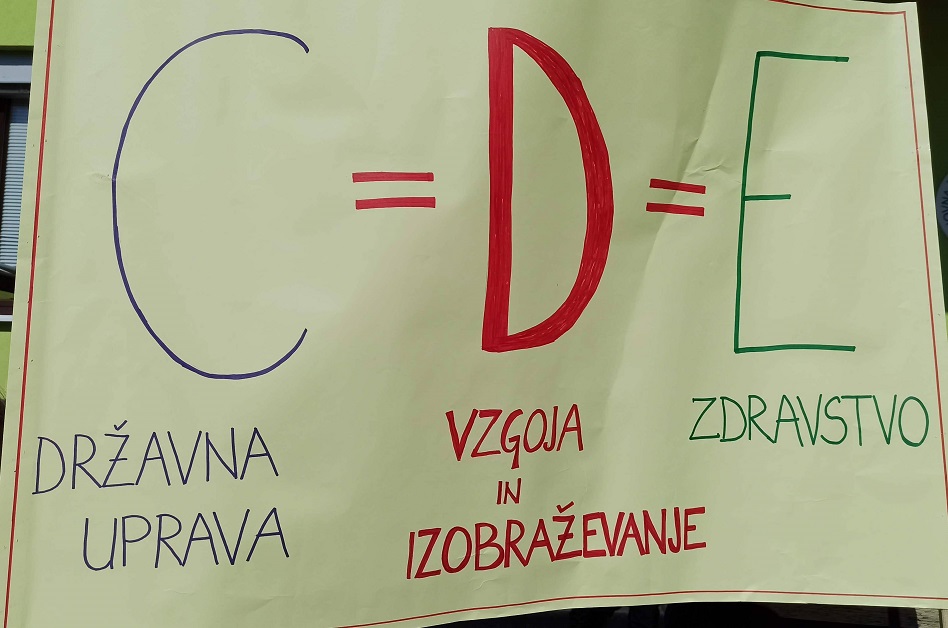 C = D = E
DRŽAVNA
UPRAVA
VZGOJA
IN
IZOBRAŽEVANJE
ZDRAVSTVO